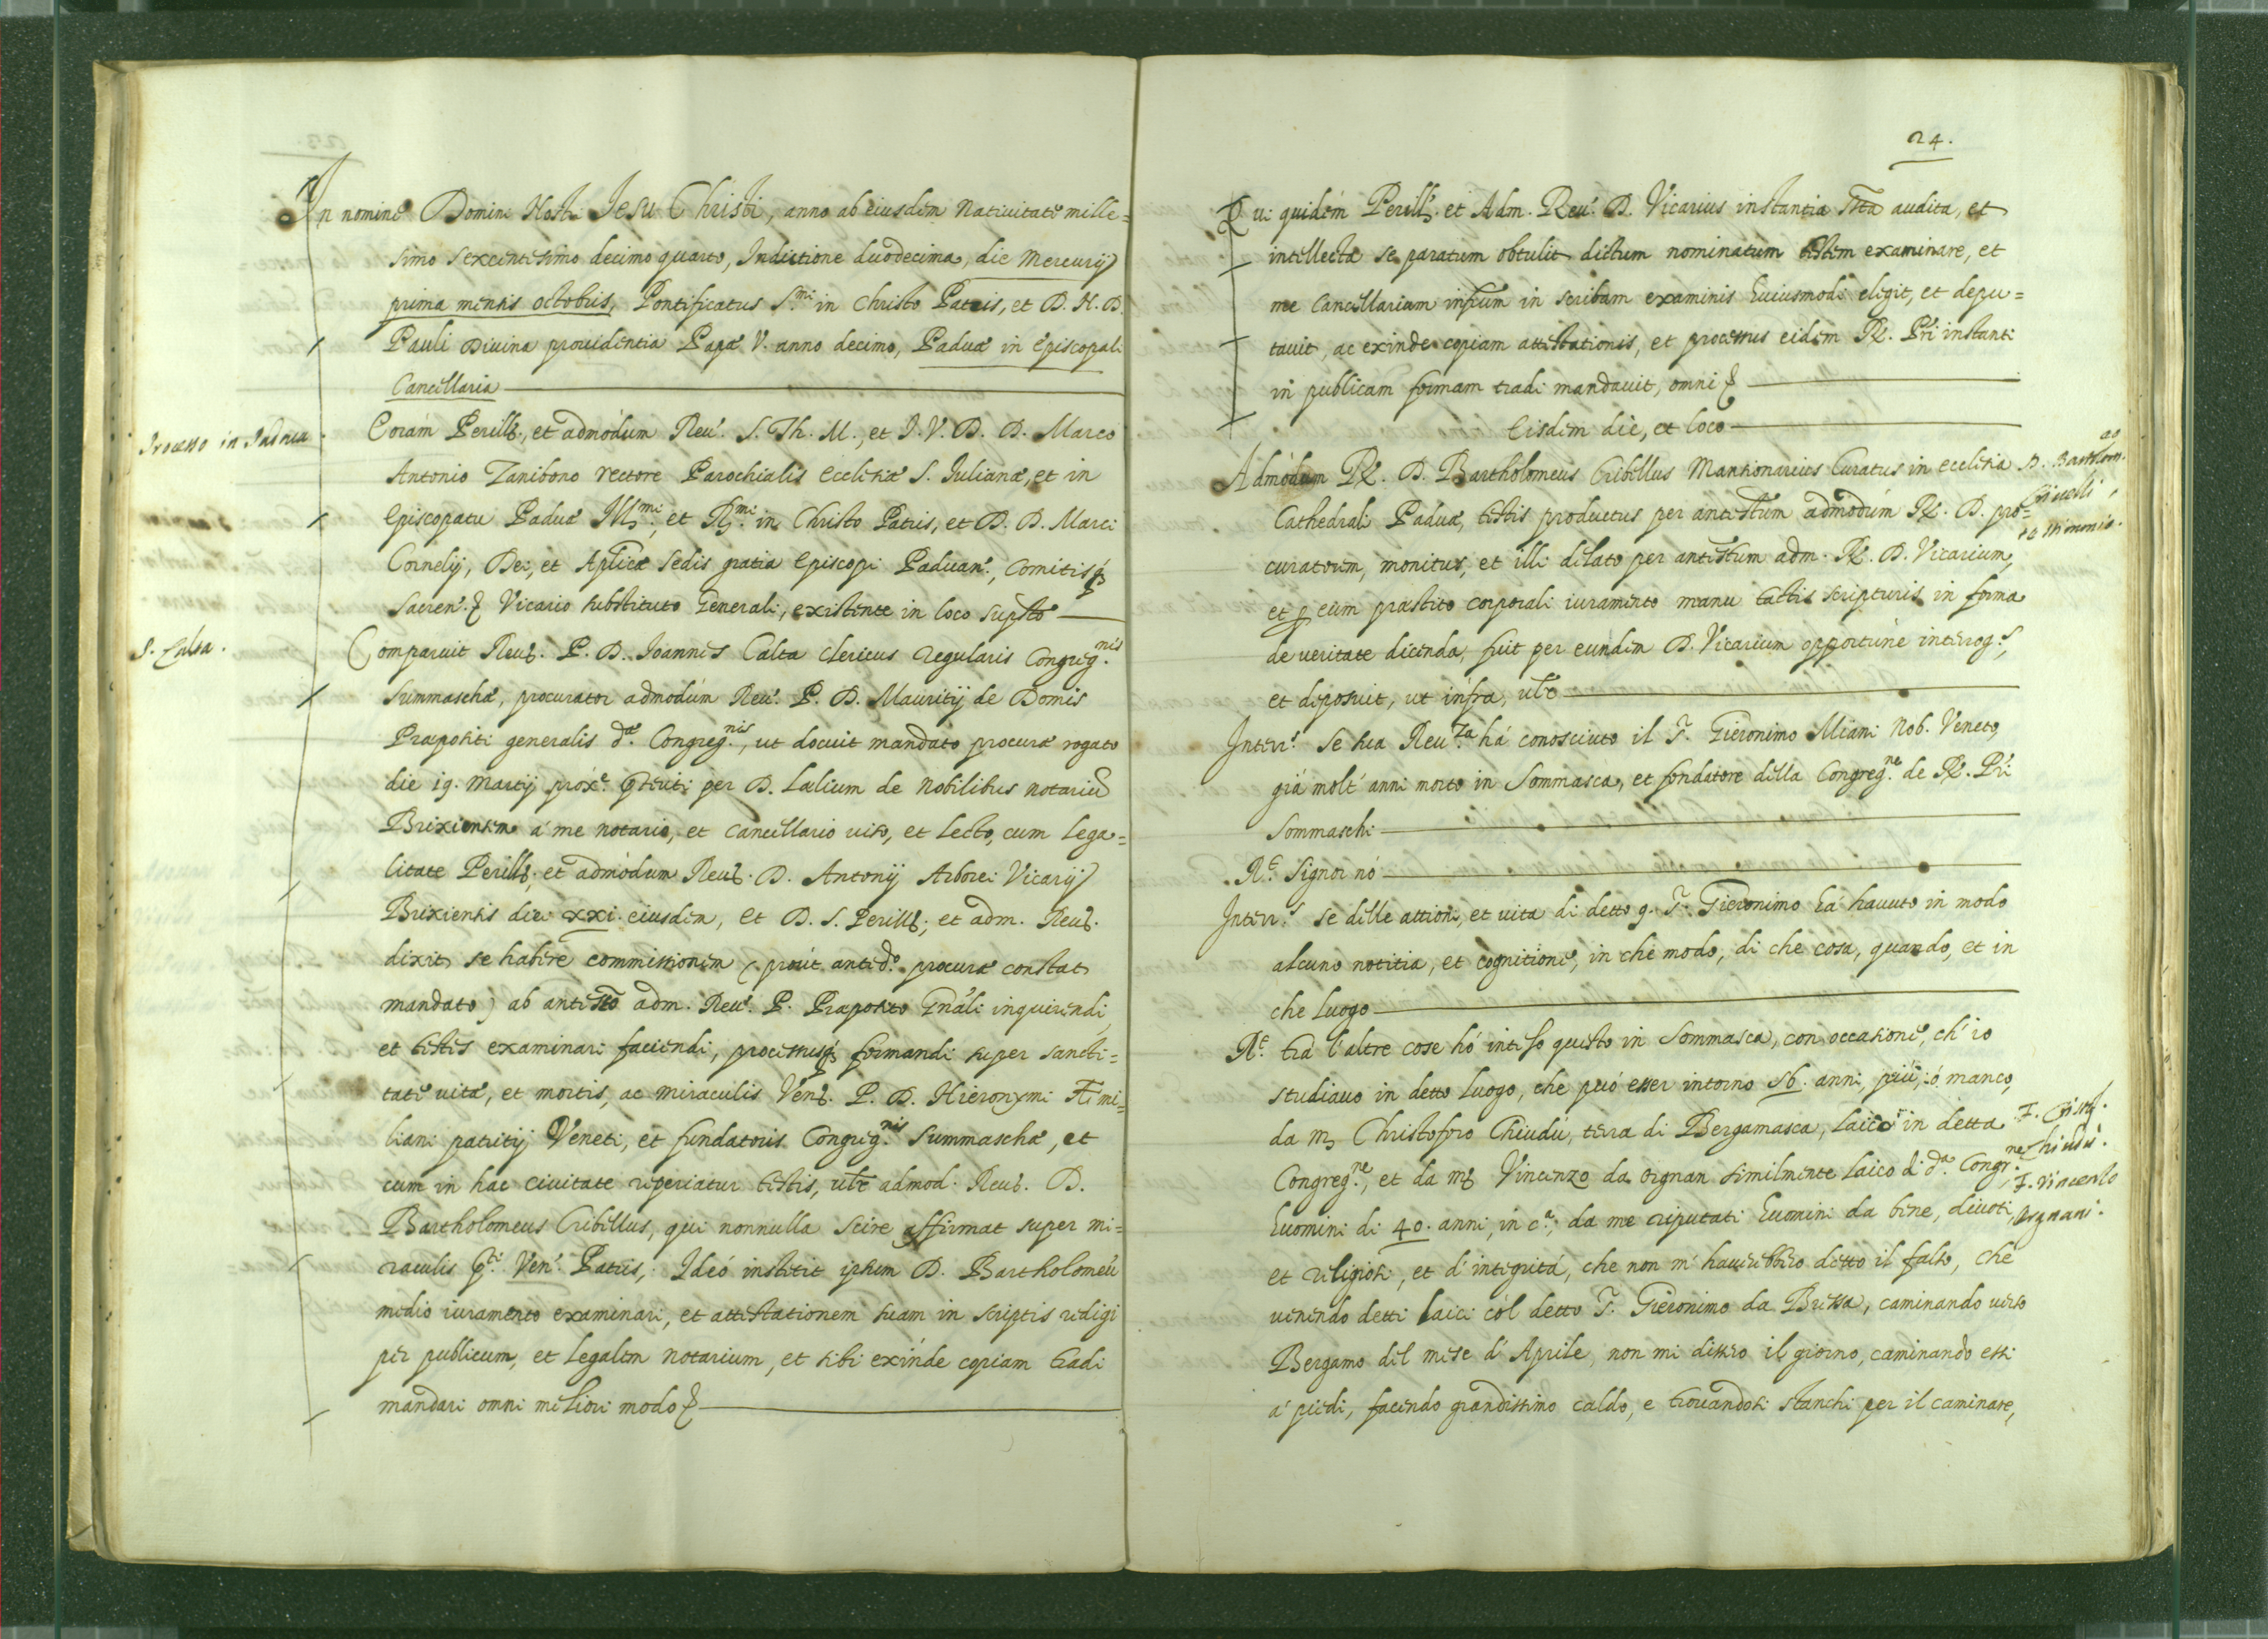 In nomine Domini Nostri Jesu Christi, anno ab eiusdem Nativitate mille=
simo sexcentesimo decimo quarto, Indictione duodecima, die Mercurij
prima mensis octobris, Pontificatus S.mi in Christo Patris, et D. N. D.
Pauli Divina providentia Papæ V. anno decimo, Paduæ in Episcopali
Cancellaria
Processo in Padoua
Coram Perill., et admodum Reu. S. Th. M., et J. V. D. D. Marco
Antonio Zanibono rectore Parochialis ecclesiæ S. Iulianæ, et in
Episcopatu Paduæ Ill.mi, et R.mi in Christo Patris, et D. D. Marci
Cornelij, Dei, et Aplicæ sedis gratia Episcopi Paduan., Comitisq3
Sacren. & Vicario substituto Generali, existente in loco supsto
P. Calta.
Comparuit Reu. P. D. Joannes Calta clericus regularis Congreg.nis
summaschæ, procurator admodùm Reu. P. D. Mauritij de Domis
Præpositi generalis d.æ Congreg.nis, ut docuit mandato procuræ rogato
die 19. Martij prox.e pteriti per D. Lælium de Nobilibus notariũ
Brixiensem à me notario, et Cancellario viso, et lecto, cum lega=
litate Perill. et admodum Reu. D. Antonij Arborei Vicarij
Brixiensis diei xxi. eiusdem, et D. S. Perill., et adm. Reu.
dixit se habere commissionem (prout anted.o procuræ constat
mandato) ab antesto adm. Reu. P. Præposito Gnãli inquirendi,
et testes examinari faciendi, processusq3 formandi super sancti=
tate vitæ, et mortis, ac miraculis Ven. P. D. Hieronymi Æmi=
liani patritij Veneti, et fundatoris Congreg.nis Summaschæ, et
cum in hac civitate reperiatur testis, vĩz admod. Reu. D.
Bartholomeus Cribellus, qui nonnulla scire affirmat super mi=
raculis pti Ven. Patris, Ideó institit ipsum D. Bartholomeũ
medio iuramento examinari, et attestationem suam in scriptis redigi
per publicum, et legalem notarium, et sibi exinde copiam tradi
mandari omni meliori modo &
24.
Qui quidem Perill. et Adm. Reu. D. Vicarius instantia sta audita, et
intellecta se paratum obtulit dictum nominatum testem examinare, et
me Cancellarium infrum in scribam examinis huiusmodi elegit, et depu=
tauit, ac exinde copiam attestationis, et processus eidem R. Pri instanti
in publicam formam tradi mandauit, omni &
Eisdem die, et loco
Admodum R. D. Bartholomeus Cribellus Mansionarius Curatus in ecclesia
D. Bartolom.eo
Criuelli
testimonio.
Cathedrali Paduæ, testis productus per antestum admodùm R. D. pro=
curatorem, monitus, et illi delato per antestum adm. R. D. Vicarium,
et p eum præstito corporali iuramento manu tactis scripturis in forma
de veritate dicenda, fuit per eundem D. Vicarium opportunè interog.s,
et deposuit, ut infra, vĩz
Interr.s se sua Reu.za há conosciuto il P. Gieronimo Miani Nob. Veneto,
giá molt' anni morto in Sommasca, et fondatore della Congreg.ne de R. Pri
Sommaschi
R.t Signor nó
Interr.s se delle attioni, et vita di detto q. P. Gieronimo há havuto in modo
alcuno notitia, et cognitione, in che modo, di che cosa, quando, et in
che luogo
R.t trà l'altre cose hó inteso questo in Sommasca, con occasione, ch' io
studiauo in detto luogo, che puó esser intorno 56. anni, più, ó manco,
da m. Christoforo Chiudù, terra di Bergamasca, laico in detta
F. Crist.
Chiudù.
Congreg.ne, et da m. Vincenzo da Orgnan similmente laico di d.a Congr.ne,
F. Vincenzo
Orgnani.
huomini di 40. anni, in c.a, da me reputati huomini da bene, diuoti,
et religiosi, et d' integritá, che non m' hauerebbero detto il falso, che
venendo detti laici cól detto P. Gieronimo da Bressa, caminando verso
Bergamo del mese d' Aprile, non mi dissero il giorno, caminando essi
a' piedi, facendo grandissimo caldo, e trouandosi stanchi per il caminare,